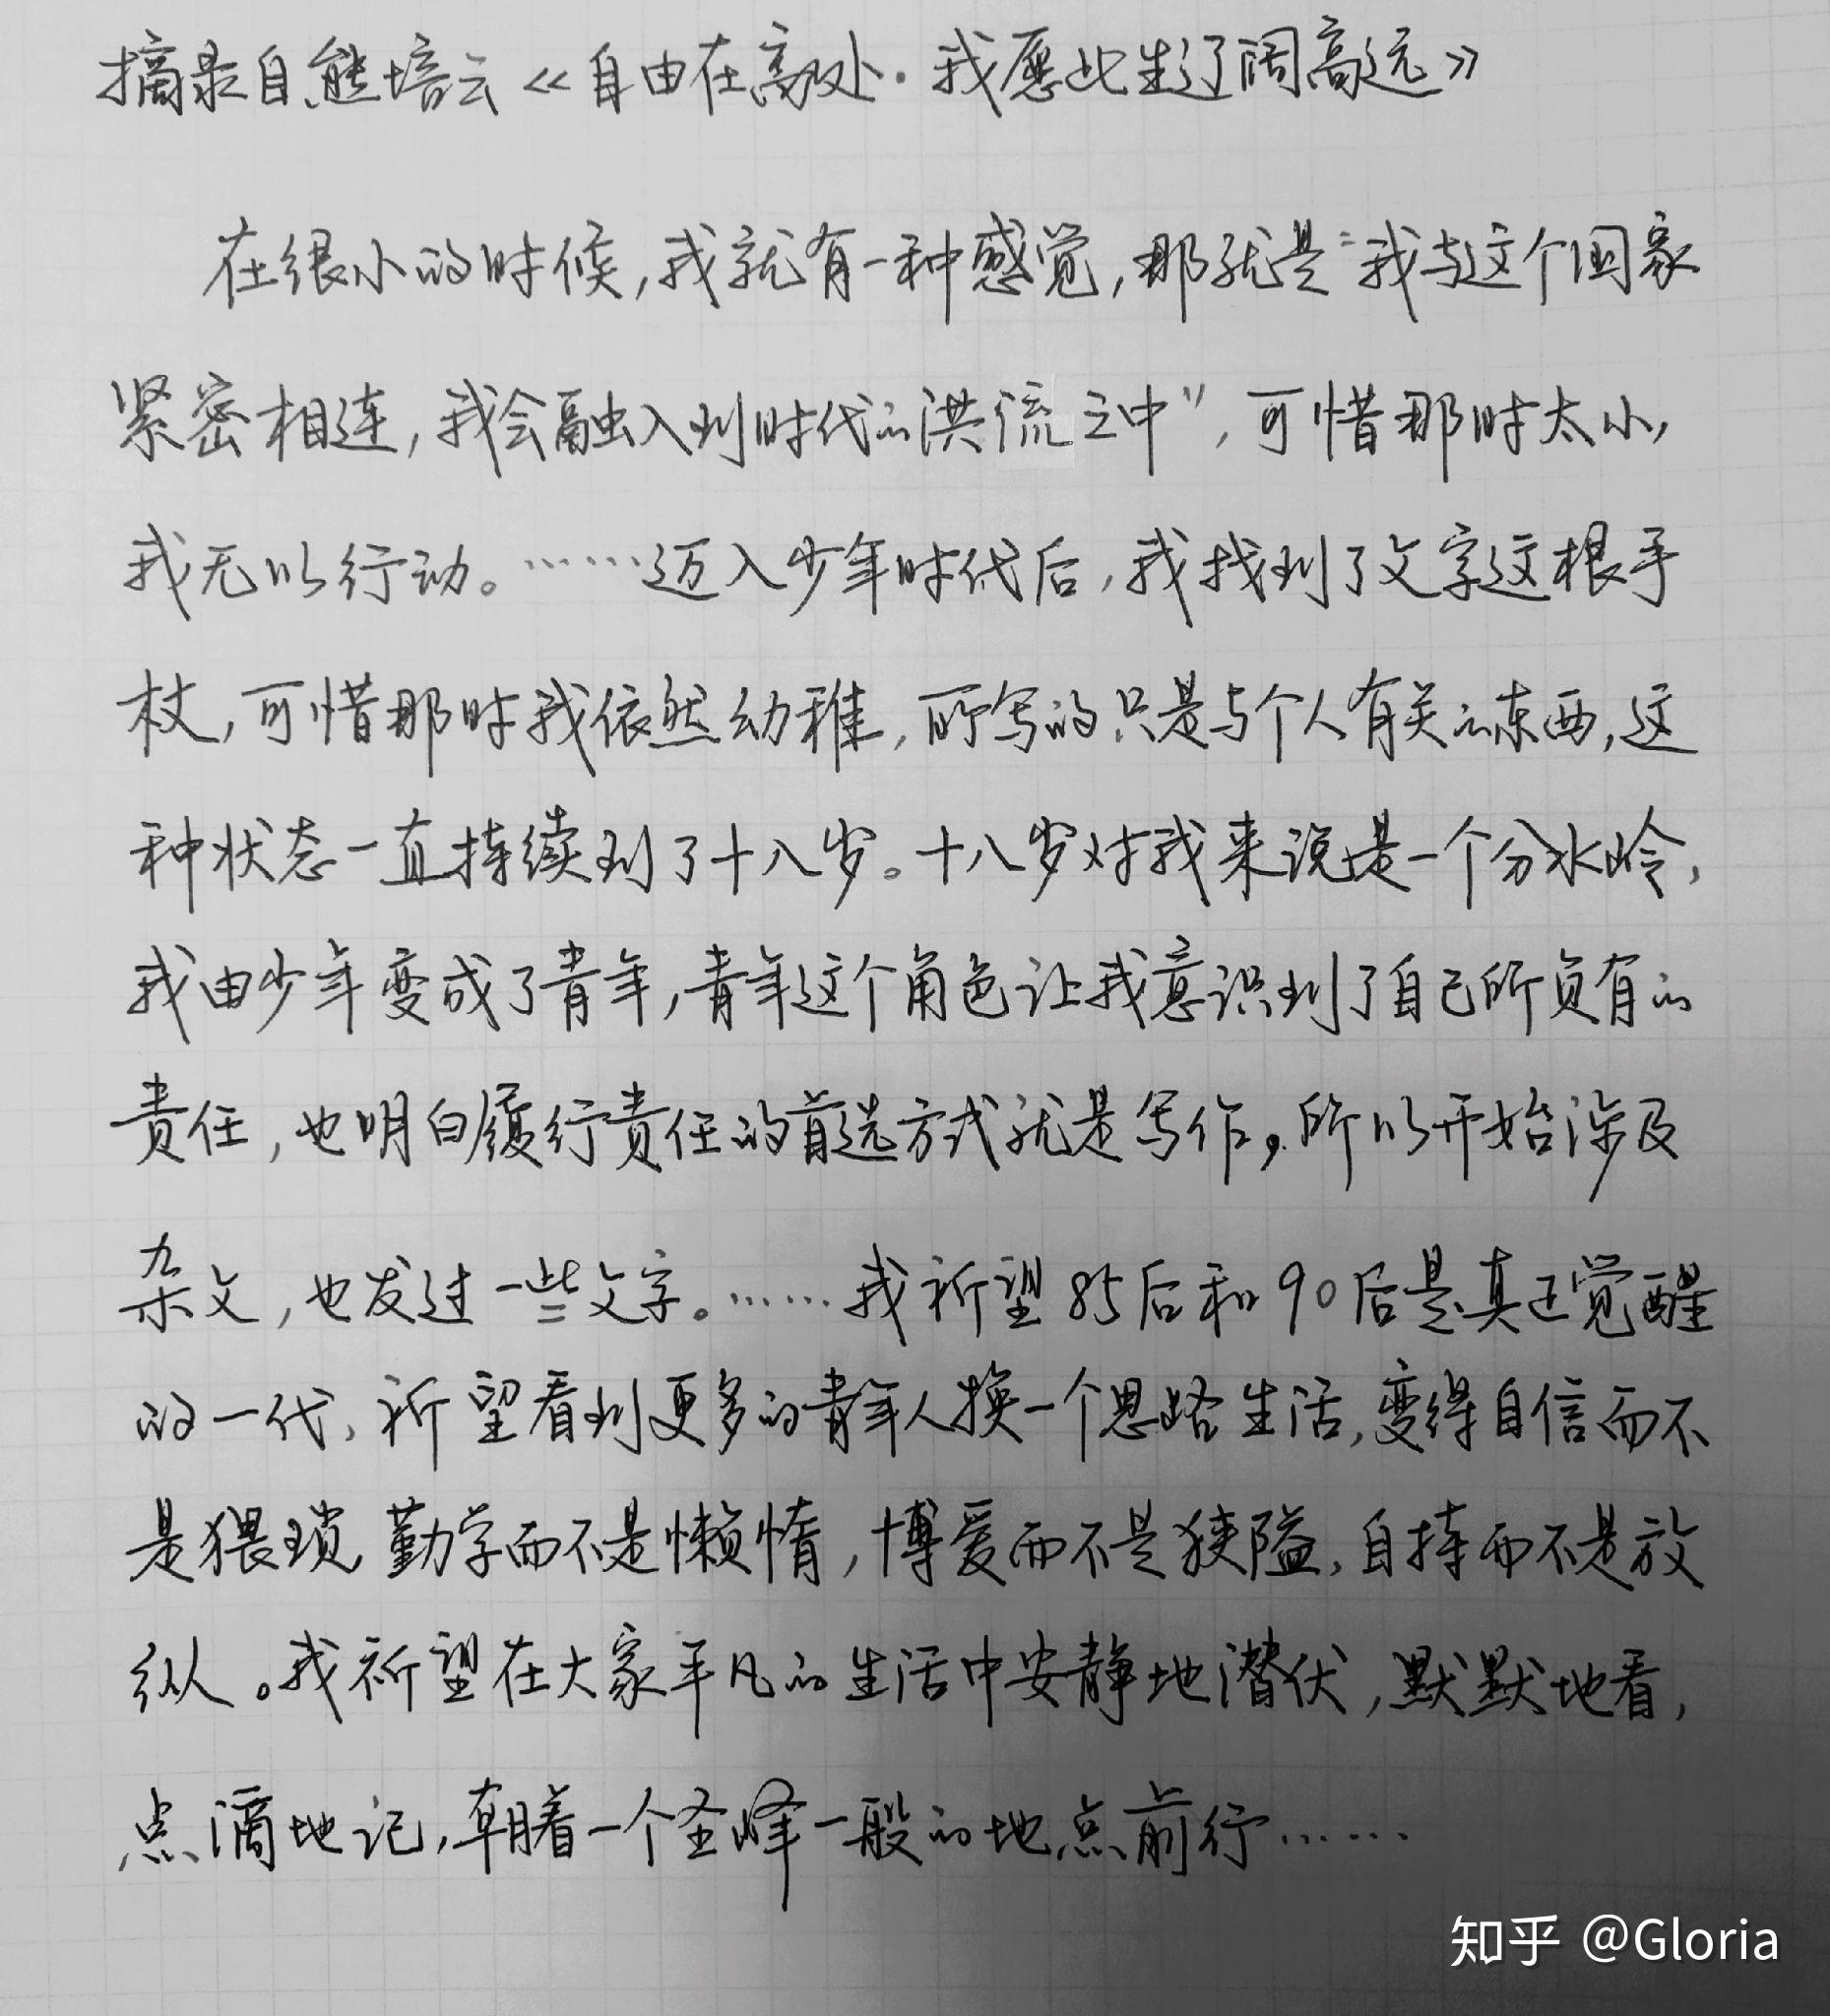 摘录自熊培云《自由在高处·我愿此生辽阔高远》
在很小的时候,我就有一种感觉,那就是“我与这个国家
紧密相连,我会融入到时代的洪流之中”,可惜那时太小,
我无以行动。……迈入少年时代后,我找到了文字这根手
杖,可惜那时我依然幼稚,所写的只是与个人有关的东西,这
种状态一直持续到了十八岁。十八岁对我来说是一个分水岭,
我由少年变成了青年,青年这个角色让我意识到了自己所负有的
责任,也明白履行责任的首选方式就是写作,所以开始涉及
杂文,也发过一些文字。……我祈望85后和90后是真正觉醒
的一代,祈望看到更多的青年人换一个思路生活,变得自信而不
是猥琐 勤学而不是懒惰,博爱而不是狭隘,自持而不是放
纵。我祈望在大家平凡的生活中安静地潜伏,默默地看,
点滴地记,朝着一个圣峰一般的地点前行……
知乎 @Gloria